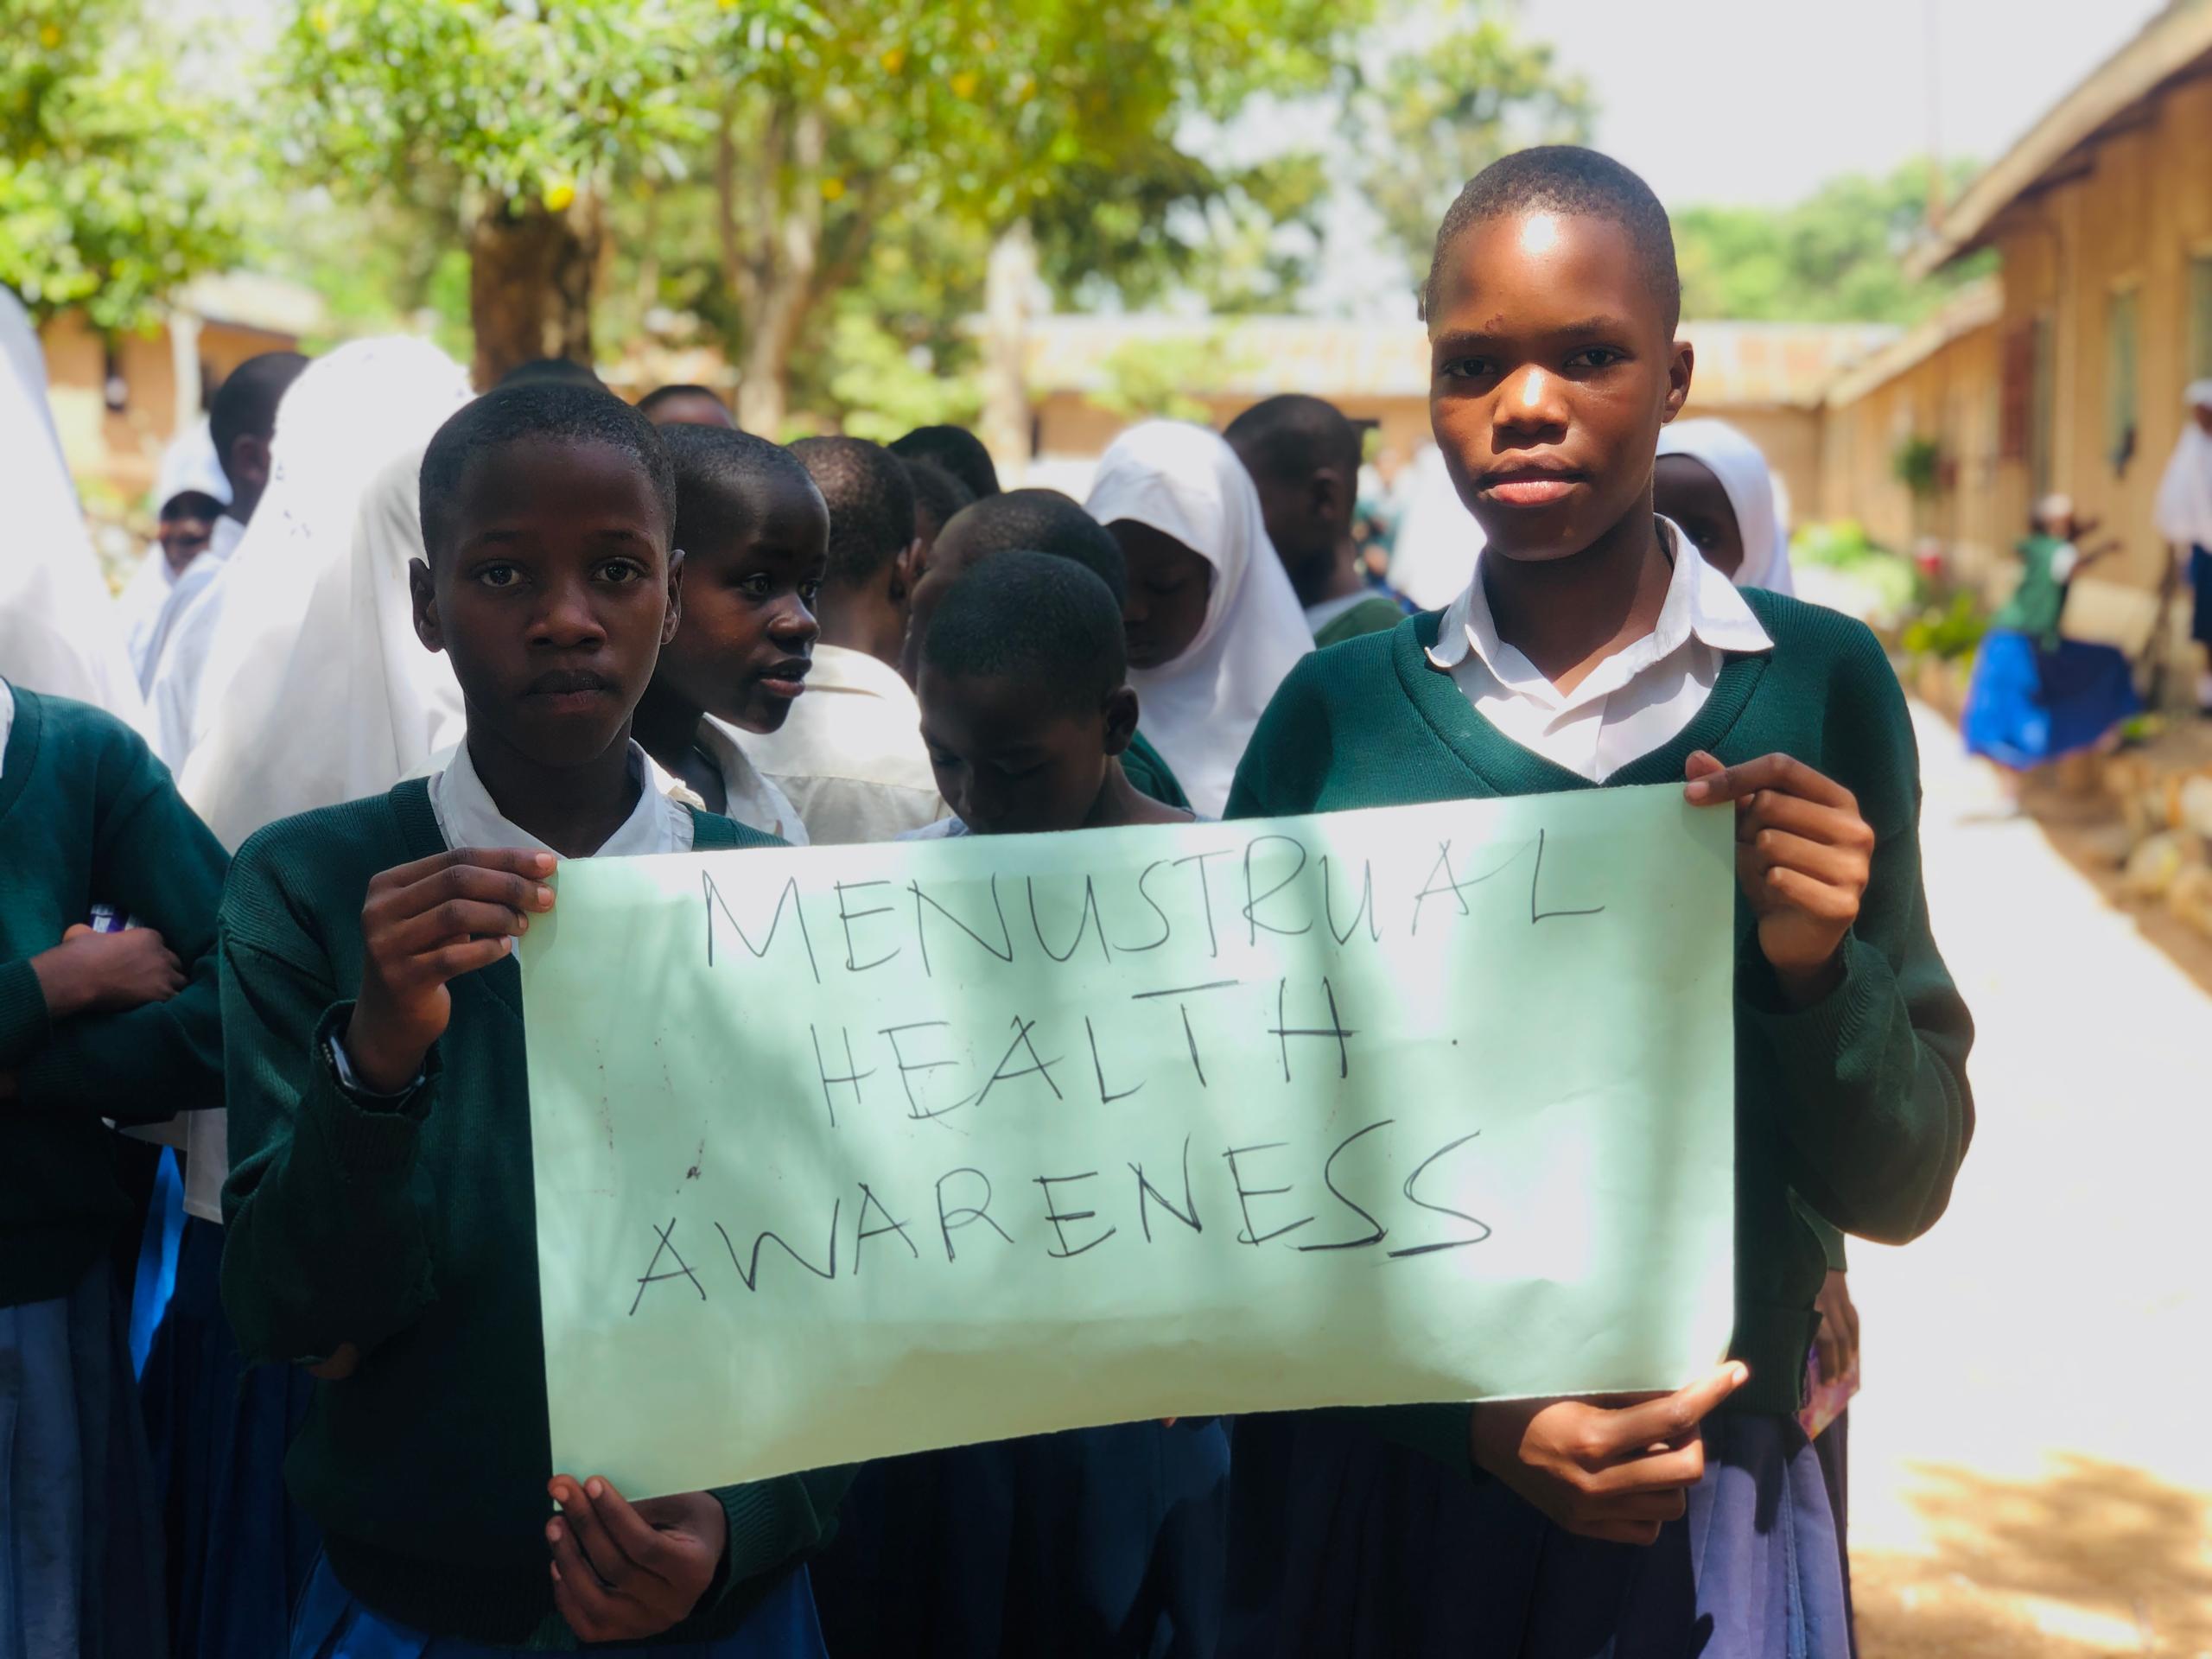 MENUSTRUAL
HEALTH
AWARENESS